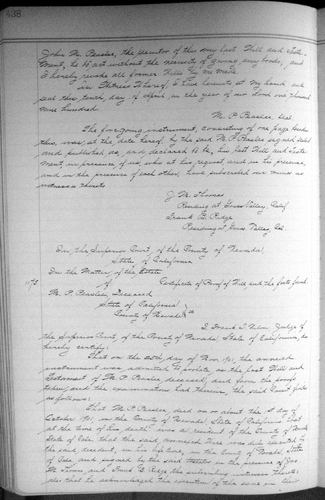 438
John M. Bassler, the executor of this my last Will and Testa-
ment, he to act without the necessity of giving any bonds, and
I hereby revoke all former Wills by me made.
In Witness Whereof, I have hereunto set my hand and
seal this tenth day of April in the year of our Lord one thousand
nine hundred
M. P. Bassler, seal
The foregoing instrument, consisting of one page besides
this, was, at the date hereof, by the said M. P. Bassler signed, sealed
and published as, and declared to be, his last Will and Testa-
ment, in presence of us who at his request and in his presence,
and in the presence of each other, have subscribed our names as
witnesses thereto
J. M. Thomas
Residing at Grass Valley Calif
Frank G. Ridge
Residing at Grass Valley Cal
In the Superior Court, of the County of Nevada,
State of California
In the Matter of the Estate
of
Certificate of Proof of Will and the facts found.
M. P. Bassler, Deceased
State of California
County of Nevada ss
I, Frank T. Nilon, Judge of
the Superior Court of the County of Nevada, State of California, do
hereby certify:
That on the 25th day of Nov. 1901, the annexed
instrument was admitted to probate as the last Will and
Testament of M. P. Bassler, deceased, and from the proofs
taken, and the examination had therein, the said Court finds
as follows:
That M. P. Bassler died on or about the day of
October 1901, in the County of Nevada, State of California, that
at the time of his death he was a resident of the County of Nevada
State of Cala. that the said annexed Will was duly executed by
the said decedent, in his lifetime, in the County of Nevada, State
of Cala. and signed by the said testator in the presence of
M. Thomas and Frank G. Ridge the subscribing witnesses thereto;
also that he acknowledged the execution of the same in the